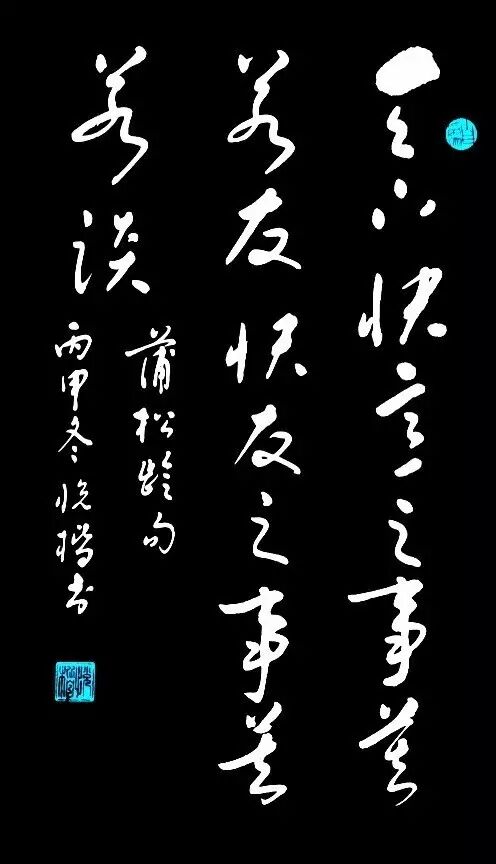 天下快意之事莫
若友快友之事莫
若谈
蒲松龄句
丙申冬悦书